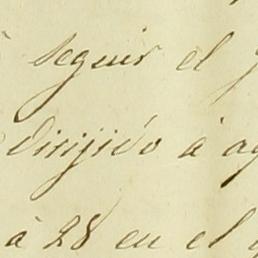 seguir el
dirijido à
à 28 en el